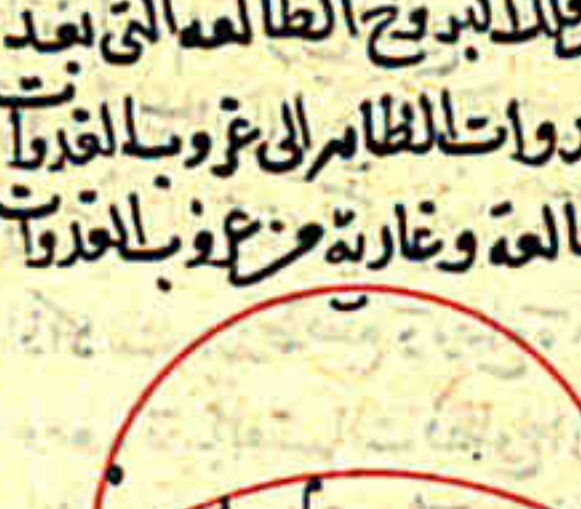 فلك البروج الطالعه التى بعد
دوات الظاهر الى غروب الغدوات
العة وغاربة من غروب الغدوات
ب
م